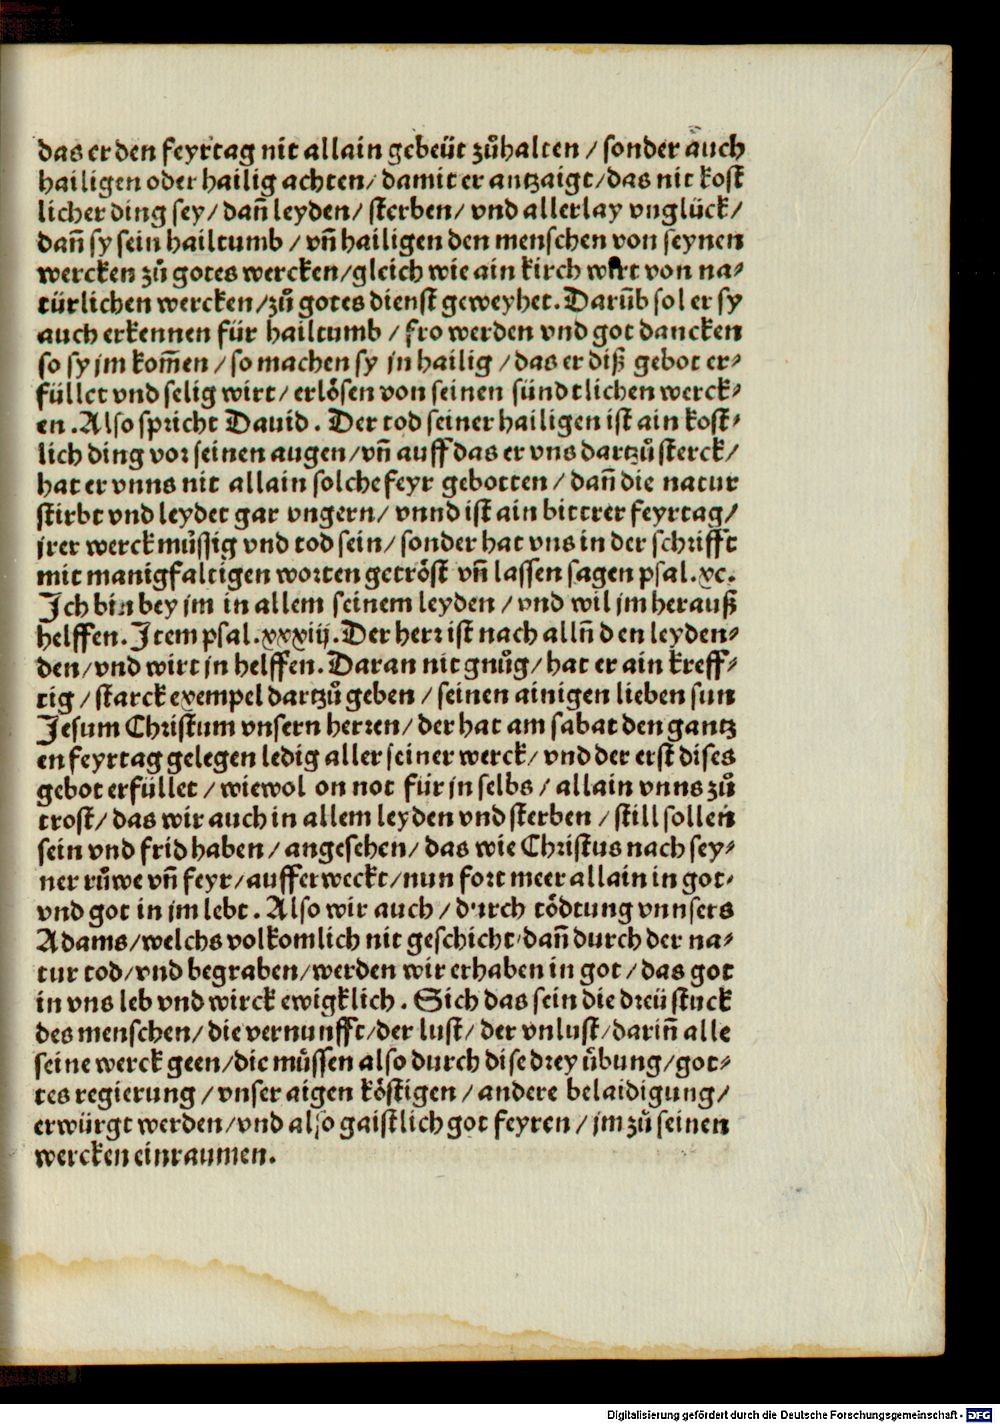 das er den feyrtag nit allain gebeüt zůhalten / sonder auch
hailigen oder hailig achten / damit er antzaigt / das nit kost
licher ding sey / dañ leyden / sterben / vnd allerlay vnglück /
dañ sy sein hailtumb / vñ hailigen den menschen von seynen
wercken zů gotes wercken / gleich wie ain kirch wirt von na⸗
türlichen wercken / zů gotes dienst geweyhet. Darūb sol er sy
auch erkennen für hailtumb / fro werden vnd got dancken
so sy jm kom̄en / so machen sy jn hailig / das er diß gebot er⸗
füllet vnd selig wirt / erlösen von seinen sündtlichen werck⸗
en. Also spricht Dauid. Der tod seiner hailigen ist ain kost⸗
lich ding vor seinen augen / vñ auff das er vns dartzů sterck /
hat er vnns nit allain solche feyr gebotten / dañ die natur
stirbt vnd leydet gar vngern / vnnd ist ain bittrer feyrtag /
jrer werck müssig vnd tod sein / sonder hat vns in der schrifft
mit manigfaltigen worten getröst vñ lassen sagen psal. xc.
Ich bin bey jm in allem seinem leyden / vnd wil jm herauß
helffen. Item psal. xxxiij. Der herr ist nach allñ den leyden⸗
den / vnd wirt jn helffen. Daran nit gnůg / hat er ain kreff⸗
tig / starck exempel dartzů geben / seinen ainigen lieben sun
Jesum Christum vnsern herren / der hat am sabat den gantz
en feyrtag gelegen ledig aller seiner werck / vnd der erst dises
gebot erfüllet / wiewol on not für jn selbs / allain vnns zů
trost / das wir auch in allem leyden vnd sterben / still sollen
sein vnd frid haben / angesehen / das wie Christus nach sey⸗
ner růwe vñ feyr / aufferweckt / nun fort meer allain in got⸗
vnd got in jm lebt. Also wir auch / durch tödtung vnnsers
Adams / welchs volkomlich nit geschicht / dañ durch der na⸗
tur tod / vnd begraben / werden wir erhaben in got / das got
in vns leb vnd wirck ewigklich. Sich das sein die dreü stuck
des menschen / die vernunfft / der lust / der vnlust / dariñ alle
seine werck geen / die müssen also durch dise drey übung / got⸗
tes regierung / vnser aigen köstigen / andere belaidigung /
erwürgt werden / vnd also gaistlich got feyren / jm zů seinen
wercken einraumen.
Digitalisierung gefördert durch die Deutsche Forschungsgemeinschaft - DFG